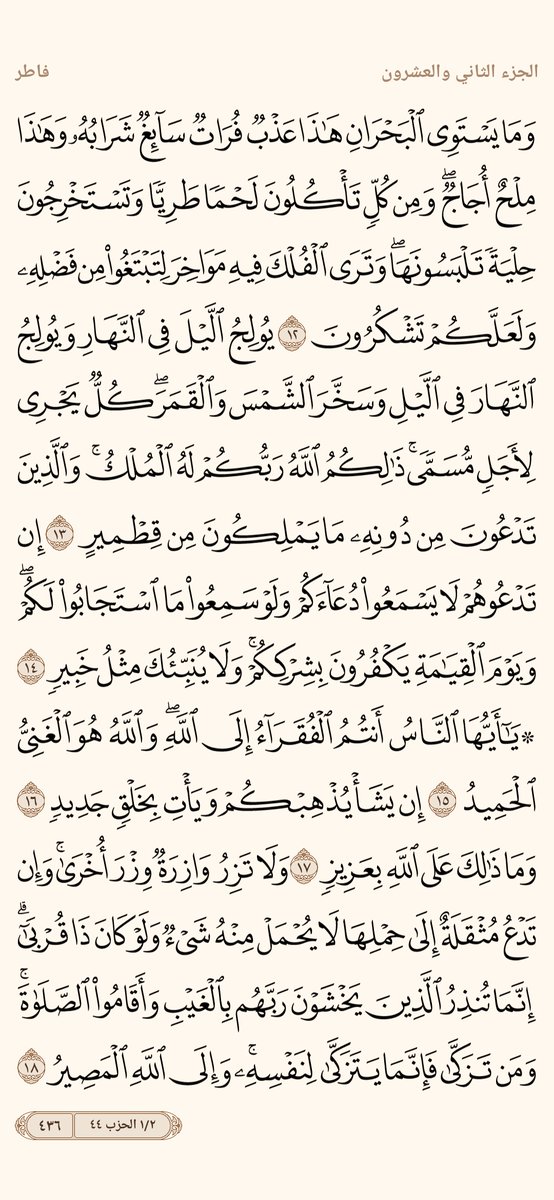 الجزء الثاني والعشرون
فاطر
وَمَا يَسْتَوِى ٱلْبَحْرَانِ هَٰذَا عَذْبٌ فُرَاتٌ سَآئِغٌ شَرَابُهُۥ وَهَٰذَا
مِلْحٌ أُجَاجٌ ۖ وَمِن كُلٍّ تَأْكُلُونَ لَحْمًا طَرِيًّا وَتَسْتَخْرِجُونَ
حِلْيَةً تَلْبَسُونَهَا ۖ وَتَرَى ٱلْفُلْكَ فِيهِ مَوَاخِرَ لِتَبْتَغُوا۟ مِن فَضْلِهِۦ
وَلَعَلَّكُمْ تَشْكُرُونَ ١٢ يُولِجُ ٱلَّيْلَ فِى ٱلنَّهَارِ وَيُولِجُ
ٱلنَّهَارَ فِى ٱلَّيْلِ وَسَخَّرَ ٱلشَّمْسَ وَٱلْقَمَرَ ۖ كُلٌّ يَجْرِى
لِأَجَلٍ مُّسَمًّى ۚ ذَٰلِكُمُ ٱللَّهُ رَبُّكُمْ لَهُ ٱلْمُلْكُ ۚ وَٱلَّذِينَ
تَدْعُونَ مِن دُونِهِۦ مَا يَمْلِكُونَ مِن قِطْمِيرٍ ١٣ إِن
تَدْعُوهُمْ لَا يَسْمَعُوا۟ دُعَآءَكُمْ وَلَوْ سَمِعُوا۟ مَا ٱسْتَجَابُوا۟ لَكُمْ ۖ
وَيَوْمَ ٱلْقِيَٰمَةِ يَكْفُرُونَ بِشِرْكِكُمْ ۚ وَلَا يُنَبِّئُكَ مِثْلُ خَبِيرٍ ١٤
۞ يَٰٓأَيُّهَا ٱلنَّاسُ أَنتُمُ ٱلْفُقَرَآءُ إِلَى ٱللَّهِ ۖ وَٱللَّهُ هُوَ ٱلْغَنِىُّ
ٱلْحَمِيدُ ١٥ إِن يَشَأْ يُذْهِبْكُمْ وَيَأْتِ بِخَلْقٍ جَدِيدٍ ١٦
وَمَا ذَٰلِكَ عَلَى ٱللَّهِ بِعَزِيزٍ ١٧ وَلَا تَزِرُ وَازِرَةٌ وِزْرَ أُخْرَىٰ ۚ وَإِن
تَدْعُ مُثْقَلَةٌ إِلَىٰ حِمْلِهَا لَا يُحْمَلْ مِنْهُ شَىْءٌ وَلَوْ كَانَ ذَا قُرْبَىٰٓ ۗ
إِنَّمَا تُنذِرُ ٱلَّذِينَ يَخْشَوْنَ رَبَّهُم بِٱلْغَيْبِ وَأَقَامُوا۟ ٱلصَّلَوٰةَ ۚ
وَمَن تَزَكَّىٰ فَإِنَّمَا يَتَزَكَّىٰ لِنَفْسِهِۦ ۚ وَإِلَى ٱللَّهِ ٱلْمَصِيرُ ١٨
١/٢ الحزب ٤٤
٤٣٦